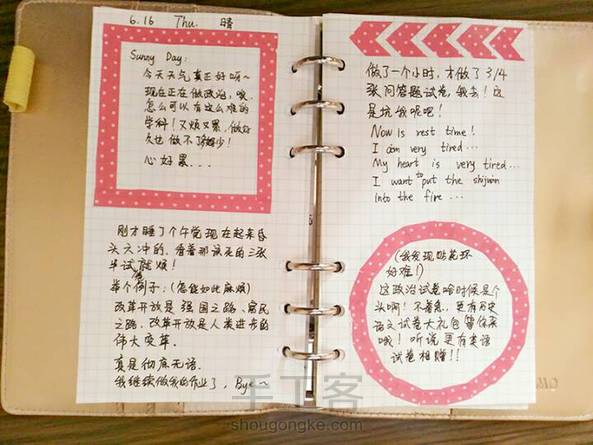 6.16 Thu. 晴
Sunny Day:
今天天气真正好呀~
现在正在做政治,哦,
怎么可以有这么难的
学科!又烦又累,做好
久也做不了多少!
心好累...
刚才睡了个午觉现在起来昏
头六冲的,看着那该死的三张
半试就烦!
举个例子:(怎能如此麻烦)
改革开放是强国之路、富民
之路,改革开放是人类进步的
伟大变革.
真是彻底无语.
我继续做我的作业了,Bye~
做了一个小时,才做了3/4
张问答题试卷,我去!这
是坑我呢吧!
Now is rest time!
I am very tired...
My heart is very tired...
I want to put the shijuan
Into the fire...
(我发现贴花环
好难!)
这政治试卷啥时候是个
头啊!不着急,更有历史
语文试卷大礼包等你来
哦!听说更有英语
试卷相赠!!
手工客
shougongke.com